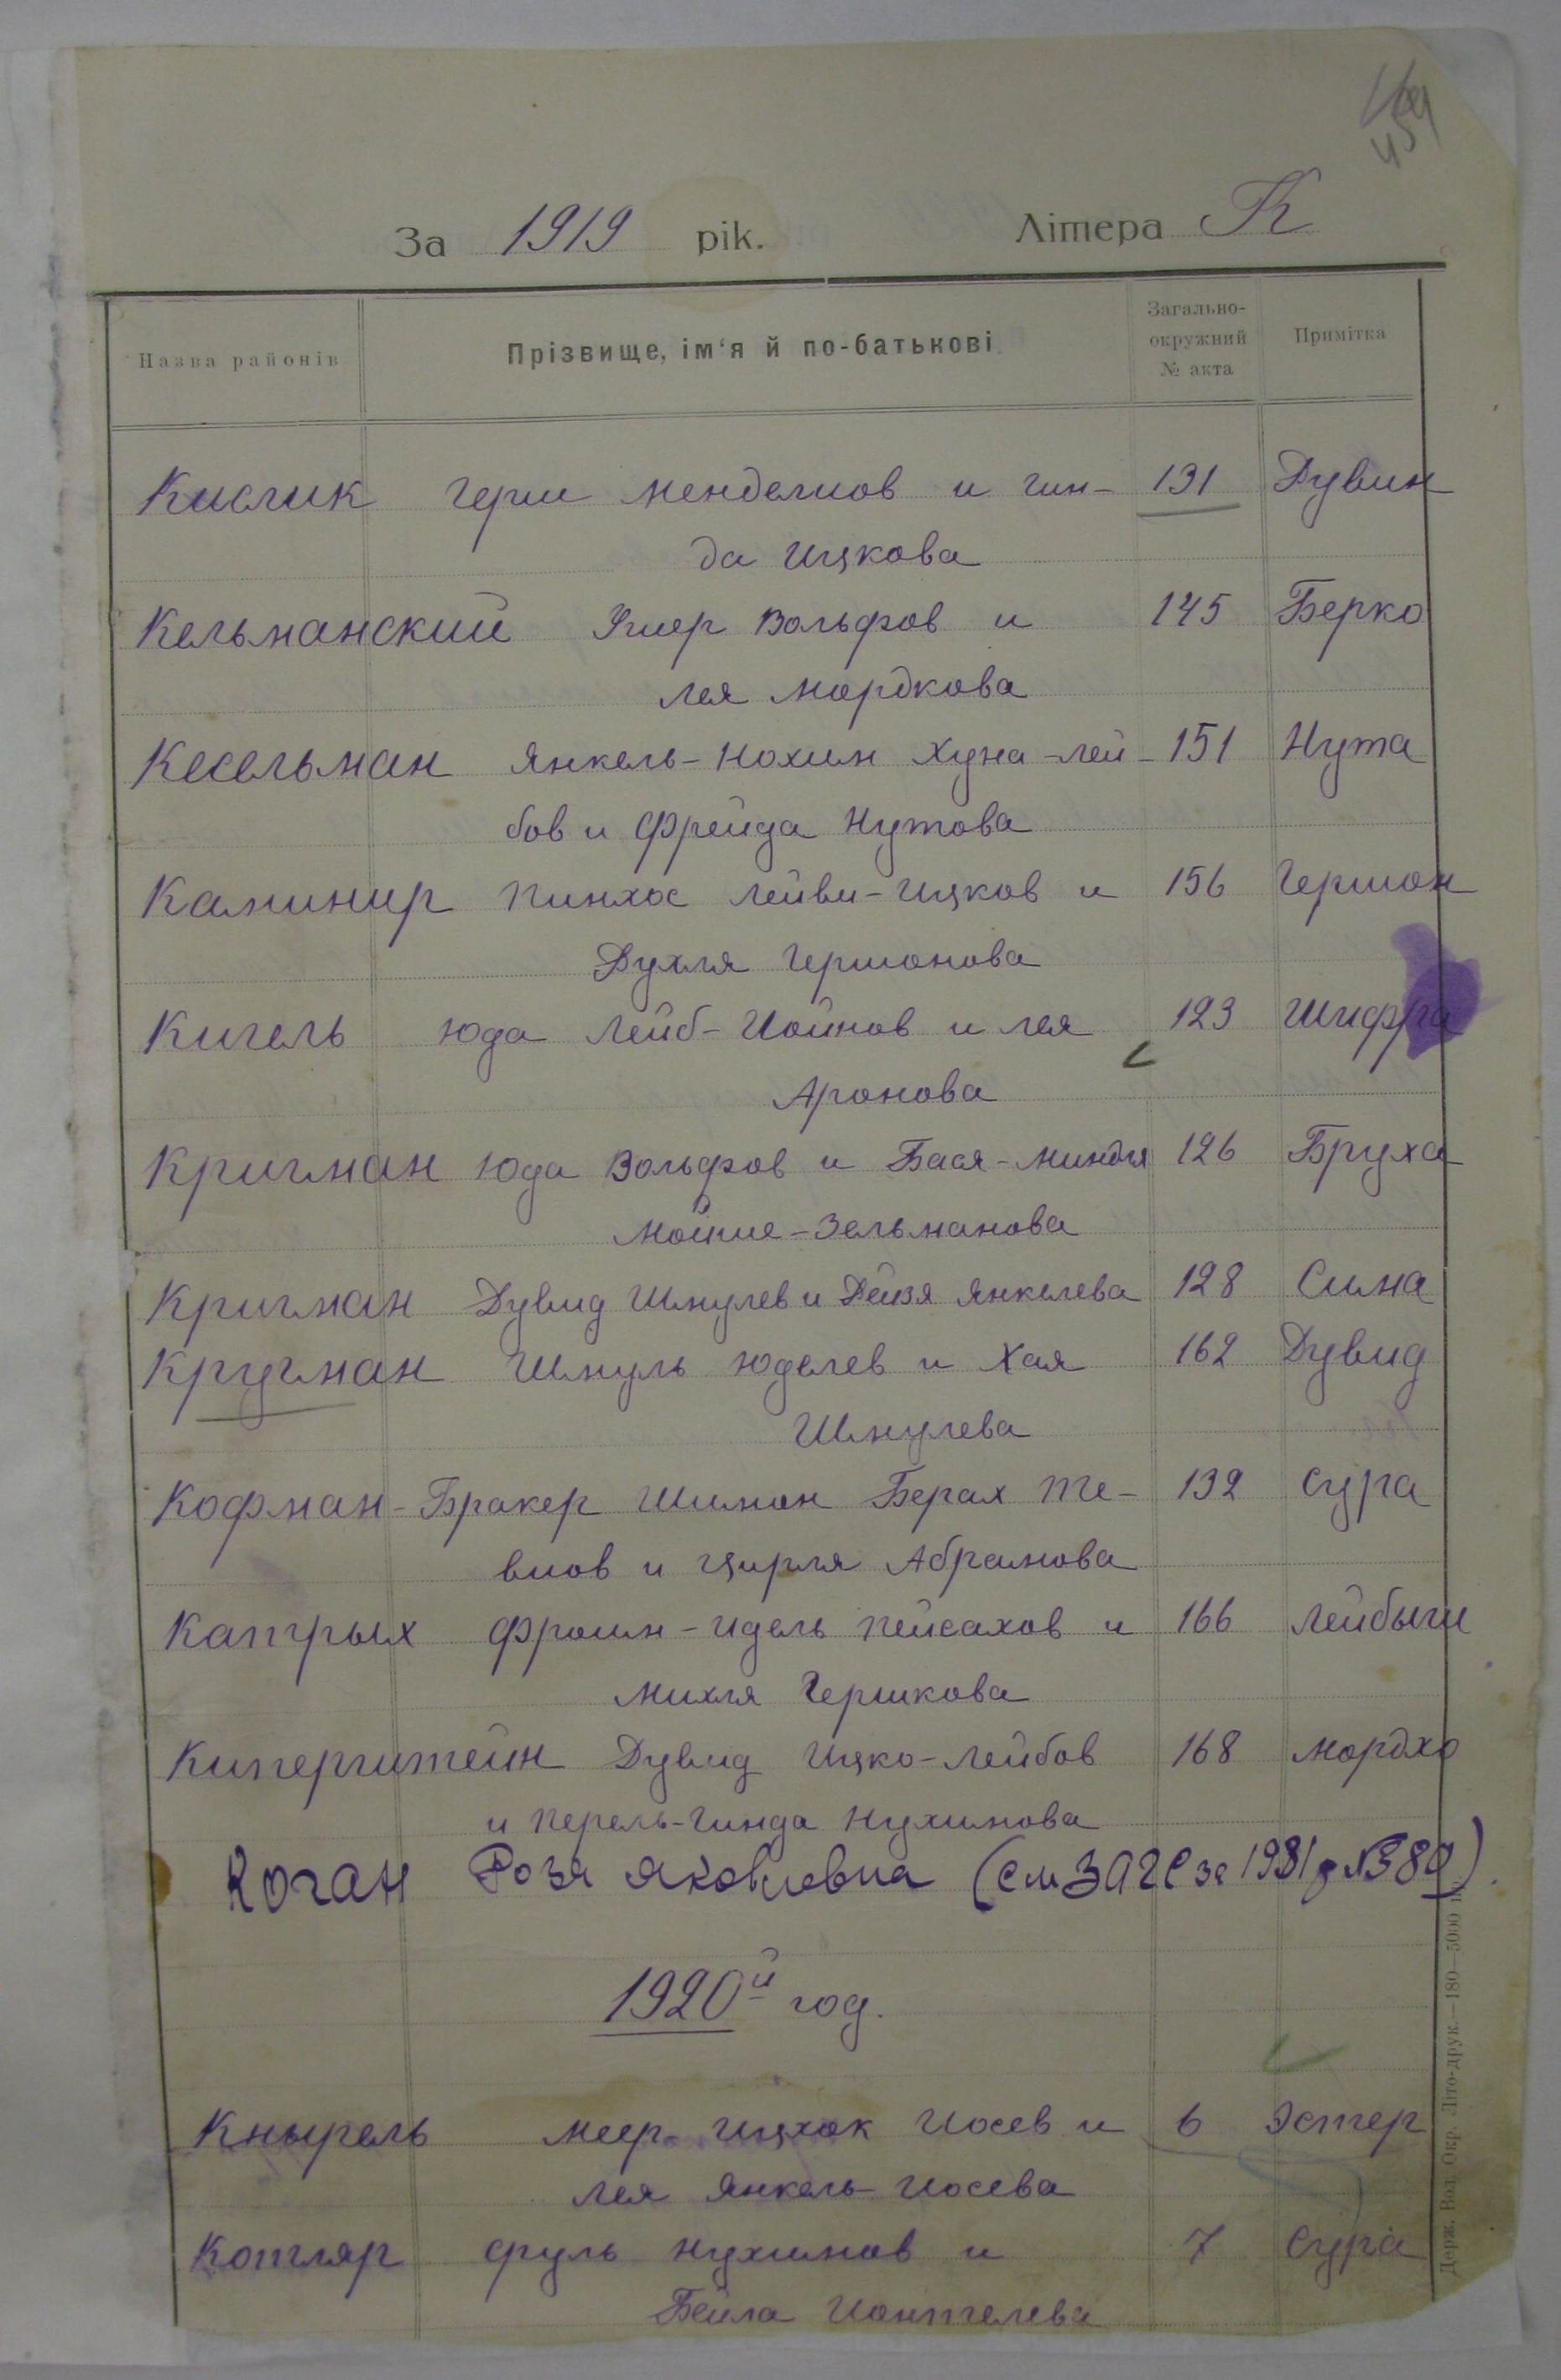 За 1919 рік. Літера К
Назва районів Прізвище, ім‘я й по-батькові Загально-окружний № акта Примітка
Кислик Герш Менделиов и Гин- 131 Дувин
да Ицкова
Кельманский Вольфов и 145 Берко
Лея Мордкова
Кесельман Янкель-Нохим Хуна-Лей- 151 Нута
бов и Фрейда Нутова
Каминир Пинхос Лейви-Ицков и 156 Гершон
Духля Гершонова
Кигель Юда Лейб-Иойнов и Лея 123 Шифра
Аронова
Кригман Юда Вольфов и Бася-Миндля 126 Бруха
Мошие-Зельманова
Кригман Дувид Шмулев и Дейзя Янкелева 128 Сима
Кругман Шмуль Юделев и Хая 162 Дувид
Шмулева
Кофман-Бракер Шимон Берах Те- 132 Сура
виов и Цирля Абрамова
Капрых Фроим-Идель Пейсахов и 166 Лейбыш
Михля Гершкова
Киперштейн Дувид Ицко-Лейбов 168 Мордхо
и Перель-Гинда Нухимова
Коган Розя Яковлевна (см ЗАГС за 1931 г №
1920й год.
Кнырель Меер-Ицхок Иосев и 6 Эстер
Лея Янкель-Иосева
Котляр Сруль Нухимов и 7 Сура
Бейла Ионтелева
Держ. Вол. Окр. Літо-друк.—180—5000 п.